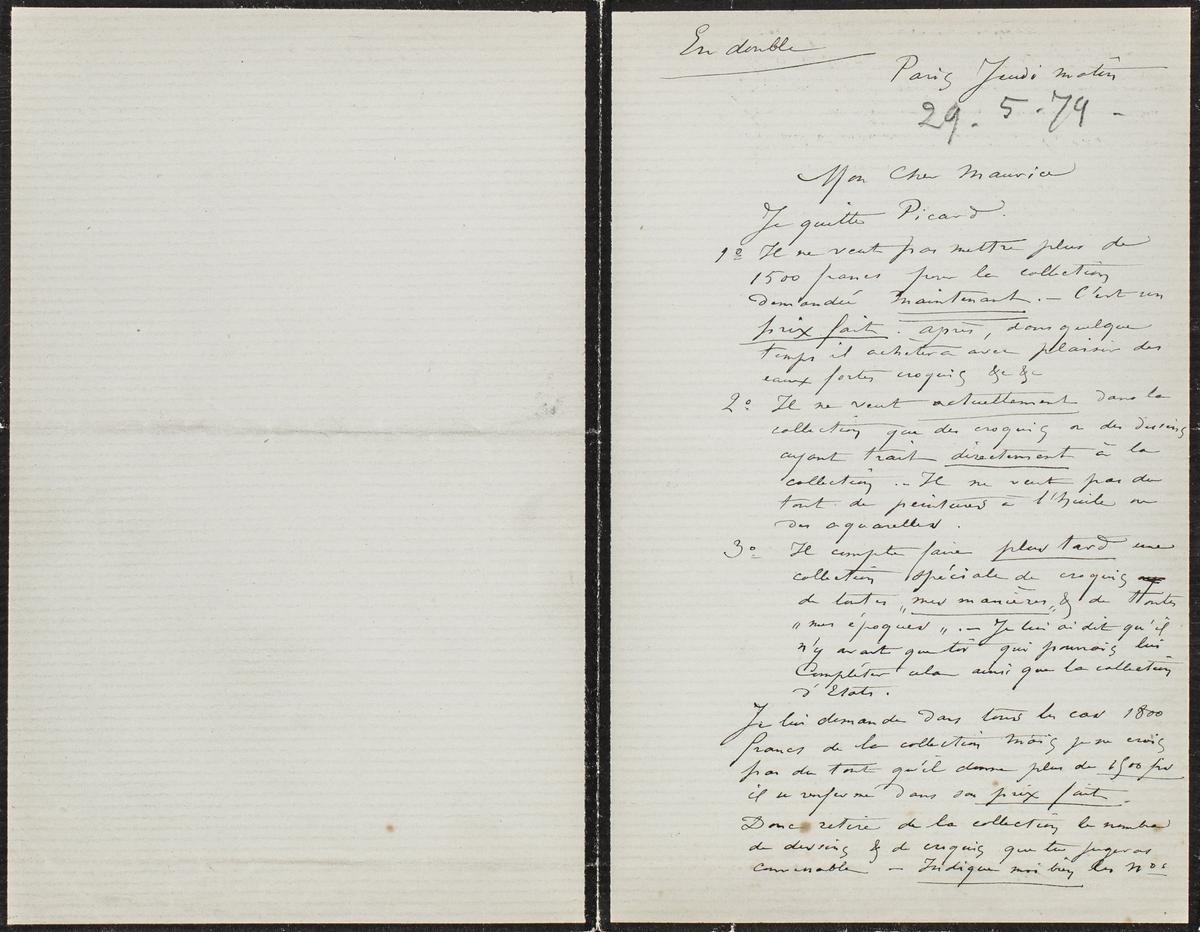 En double
Paris Jeudi matin
29. 5. 79 -
Mon Cher Maurice
Je quitte Picard.
1º Il ne veut pas mettre plus de
1500 francs pour la collection
demandée maintenant. - C'est un
prix fait. après, dans quelque
temps il achetera avec plaisir des
eaux fortes croquis &c &c
2º Il ne veut actuellement dans la
collection que des croquis ou des dessins
ayant trait directement à la
collection. - Il ne veut pas du
tout de peintures à l'huile ou
des aquarelles.
3º Il compte faire plus tard une
collection spéciale de croquis
de toutes "mes manières" & de toutes
"mes époques". - Je lui ai dit qu'il
n'y avait que toi qui pouvais lui
Compléter cela ainsi que la collection
d'Etats.
Je lui demande dans tous les cas 1800
francs de la collection mais je ne crois
pas du tout qu'il donne plus de 1500 frs
il se renferme dans son prix fait.
Donc retire de la collection le nombre
de dessins & de croquis que tu jugeras
convenable - Indique moi bien les nos